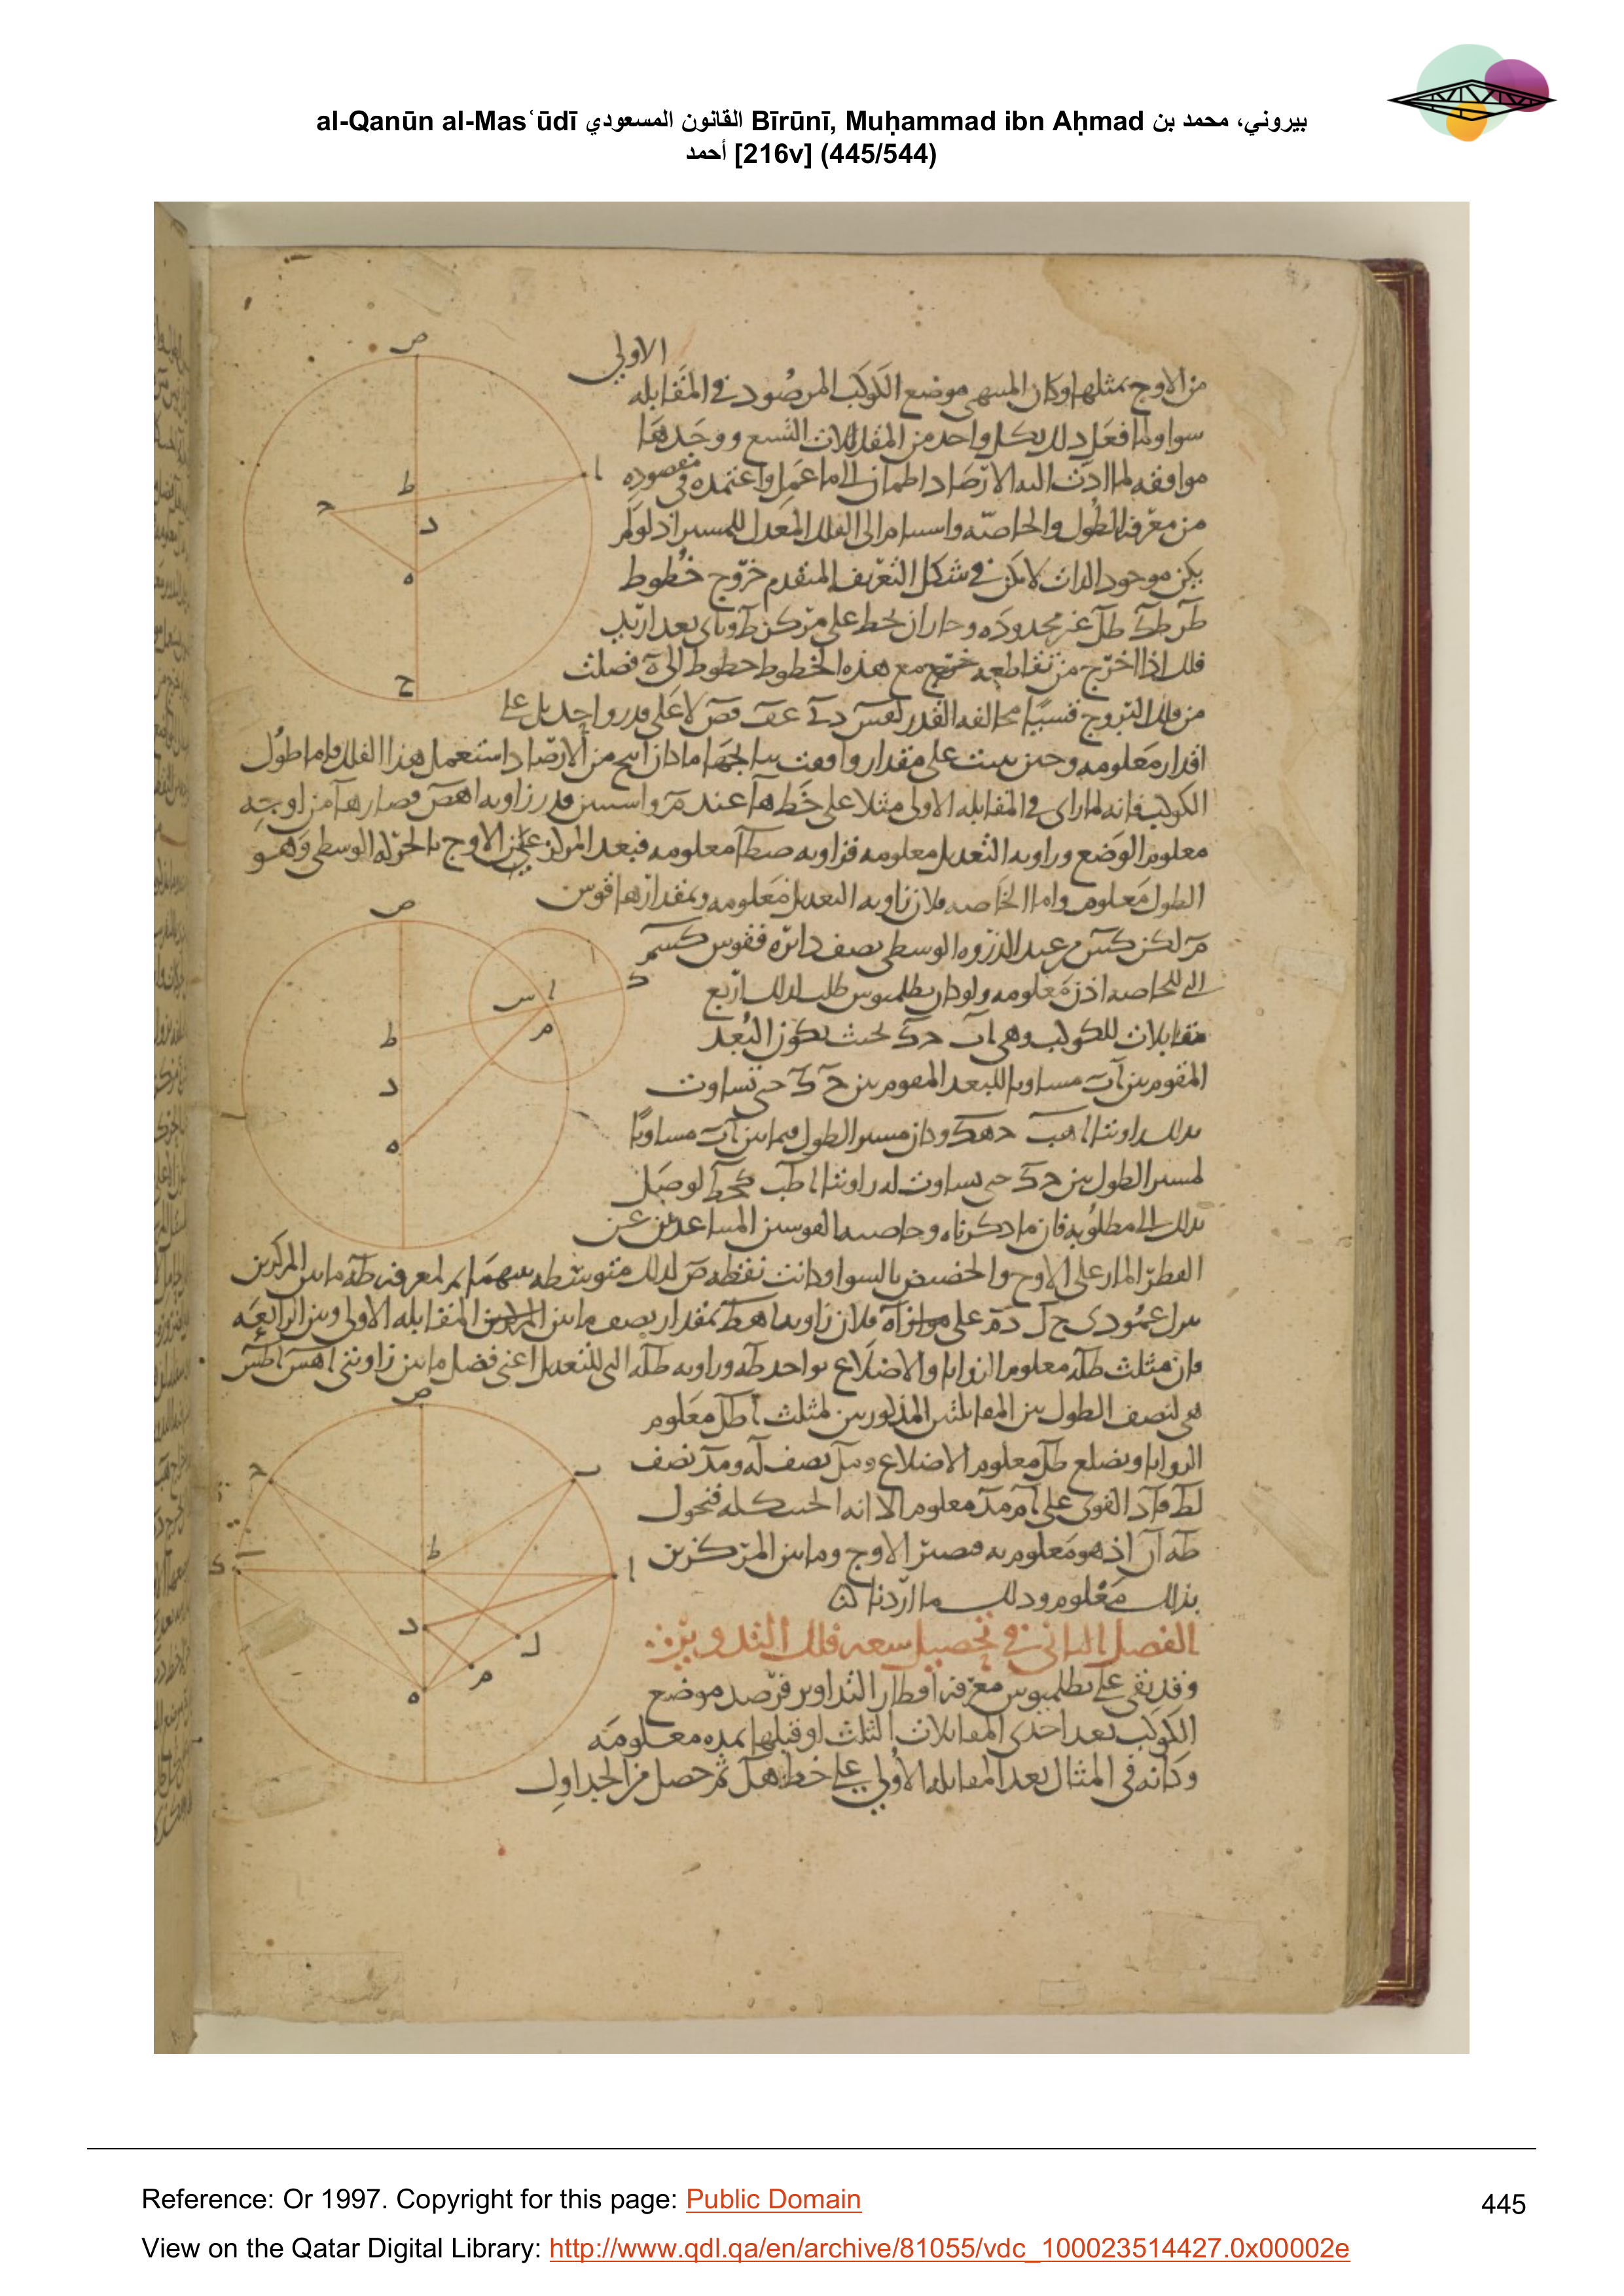 al-Qanūn al-Masʿūdī القانون المسعودي Bīrūnī, Muḥammad ibn Aḥmad بيروني، محمد بن
أحمد [216v] (445/544)
الاولى
من الاوج بمثلها وكان المنتهى موضع الكوكب المرصود في المقابله
سوا ولما فعل ذلك بكل واحد من المقابلات التسع ووجدها
موافقه لما ادت اليه الارصاد اطمان الى ما عمل واعتمده في مقصوده
من معرفه الطول والخاصه الى الفلك المعدل للمسير اذ لو لم
يكن موجود الذات لامكن في شكل التعريف المتقدم خروج خطوط
غير محدوده وجاز ان يخط على مركز ط وباي بعد اريد
فلك اذا اخرج من تقاطعه مع هذه الخطوط خطوط الى ه فصلت
من فلك البروج قسيا مخالفه القدر لا على قدر واحد بل على
اقدار معلومه وحين بنيت على مقدار وافقت نتايجها ما كان نتج من الارصاد استعمل هذا الفلك فاما طول
الكوكب فانه لما راى في المقابله الاولى مثلا على خط ها عند م قدر زاويه اهص فصار ها من اوجه
معلوم الوضع وزاويه التعديل معلومه فزاويه صطا معلومه فبعد المركز عن الاوج بالحركه الوسطى وهو
الطول معلوم واما الخاصه فلان زاويه التعديل معلومه وبمقدارها قوس
الذروه الوسطى نصف دايره فقوس كسم
التي للخاصه اذن معلومه ولو كان بطلميوس طلب لذلك اربع
مقابلات للكوكب وهي اب حك بحيث يكون البعد
المقوم بين اب مساويا للبعد المقوم بين حك حتى تساوت
بذلك زاويتا اهب حهك وكان مسير الطول فيما بين اب مساويا
لمسير الطول بين حك حتى تساوت له زاويتا اطب حطك لوصل
بذلك الى مطلوبه فان ما ذكرناه القوسين المتباعدين عن
القطر المار على الاوج والحضيض بالسوا وكانت نقطه ص لذلك متوسطه بينهما ثم لمعرفه طه ما بين المركزين
ننزل عمودي دم على اه فلان زاويه بمقدار نصف ما بين المقابله الاولى وبين الرابعه
فان مثلث طله معلوم الزوايا والاضلاع بواحد طه وزاويه التي للتعديل اعني فضل ما بين زاويتي
هي لنصف الطول بين المقابلتين المذكورتين لمثلث اطل معلوم
الزوايا وبضلع طل معلوم الاضلاع ومل نصف له ومد نصف
لط فاد القوي على ام مد معلوم الا انه الجيب كله فنحول
طه اذ هو معلوم به فيصير الاوج وما بين المركزين
بذلك معلوم وذلك ما اردناه
الفصل الثاني في تحصيل سعه فلك التدوير
وقد بقي على بطلميوس معرفه اقطار التداوير فرصد موضع
الكوكب بعد احدى المقابلات الثلث او قبلها بمده معلومه
وكانه في المثال بعد المقابله الاولى على خط هل ثم حصل من الجداول
ص
ا
ط
ح
د
ه
ج
ص
ا
س
ك
م
ط
د
ه
ص
ح
ب
ط
ك
ا
د
ل
م
ه
Reference: Or 1997. Copyright for this page: Public Domain
445
View on the Qatar Digital Library: http://www.qdl.qa/en/archive/81055/vdc_100023514427.0x00002e